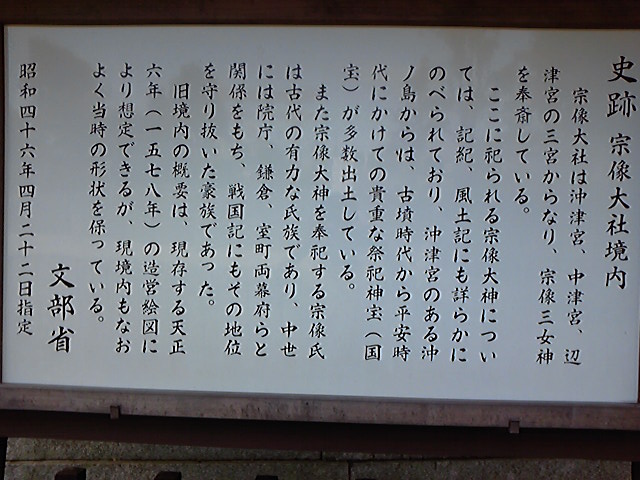 史跡 宗像大社境内
宗像大社は沖津宮、中津宮、辺
津宮の三宮からなり、宗像三女神
を奉斎している。
ここに祀られる宗像大神につい
ては、記紀、風土記にも詳らかに
のべられており、沖津宮のある沖
ノ島からは、古墳時代から平安時
代にかけての貴重な祭祀神宝（国
宝）が多数出土している。
また宗像大神を奉祀する宗像氏
は古代の有力な氏族であり、中世
には院庁、鎌倉、室町両幕府らと
関係をもち、戦国記にもその地位
を守り抜いた豪族であった。
旧境内の概要は、現存する天正
六年（一五七八年）の造営絵図に
より想定できるが、現境内もなお
よく当時の形状を保っている。
文部省
昭和四十六年四月二十二日指定